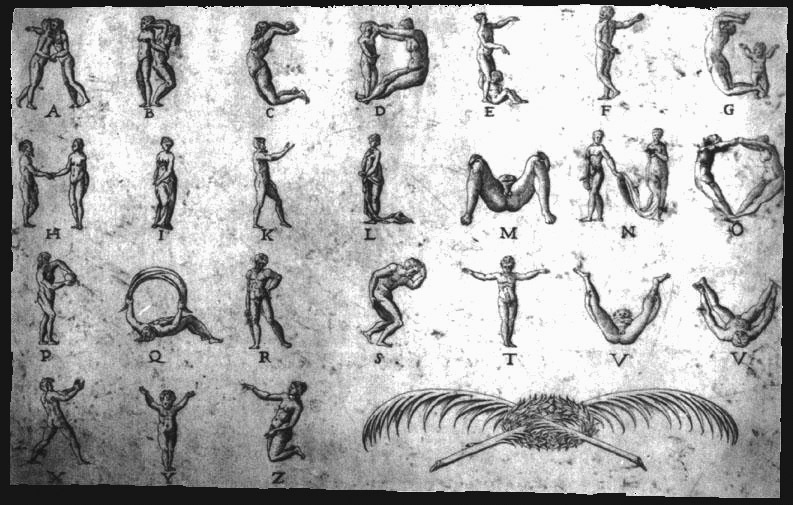 A B C D E F G
H I K L M N O
P Q R S T V V
X Y Z